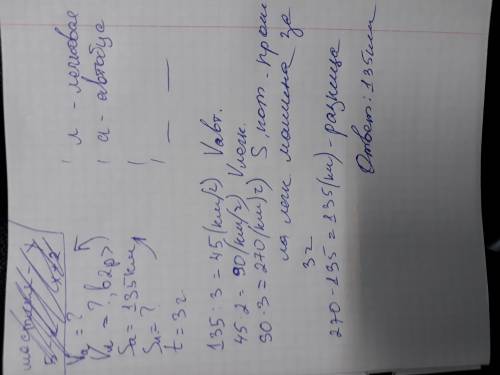 Vа = ?
Vл = ?, в 2р >
Sа = 135 км
Sл = ?
t = 3 ч
л - легковая
а - автобус
135 : 3 = 45 (км/ч) Vавт.
45 · 2 = 90 (км/ч) Vлегк.
90 · 3 = 270 (км) ч) S, кот. прош
ла легк. машина за
3ч
270 - 135 = 135 (км) - разница
Ответ: 135 км